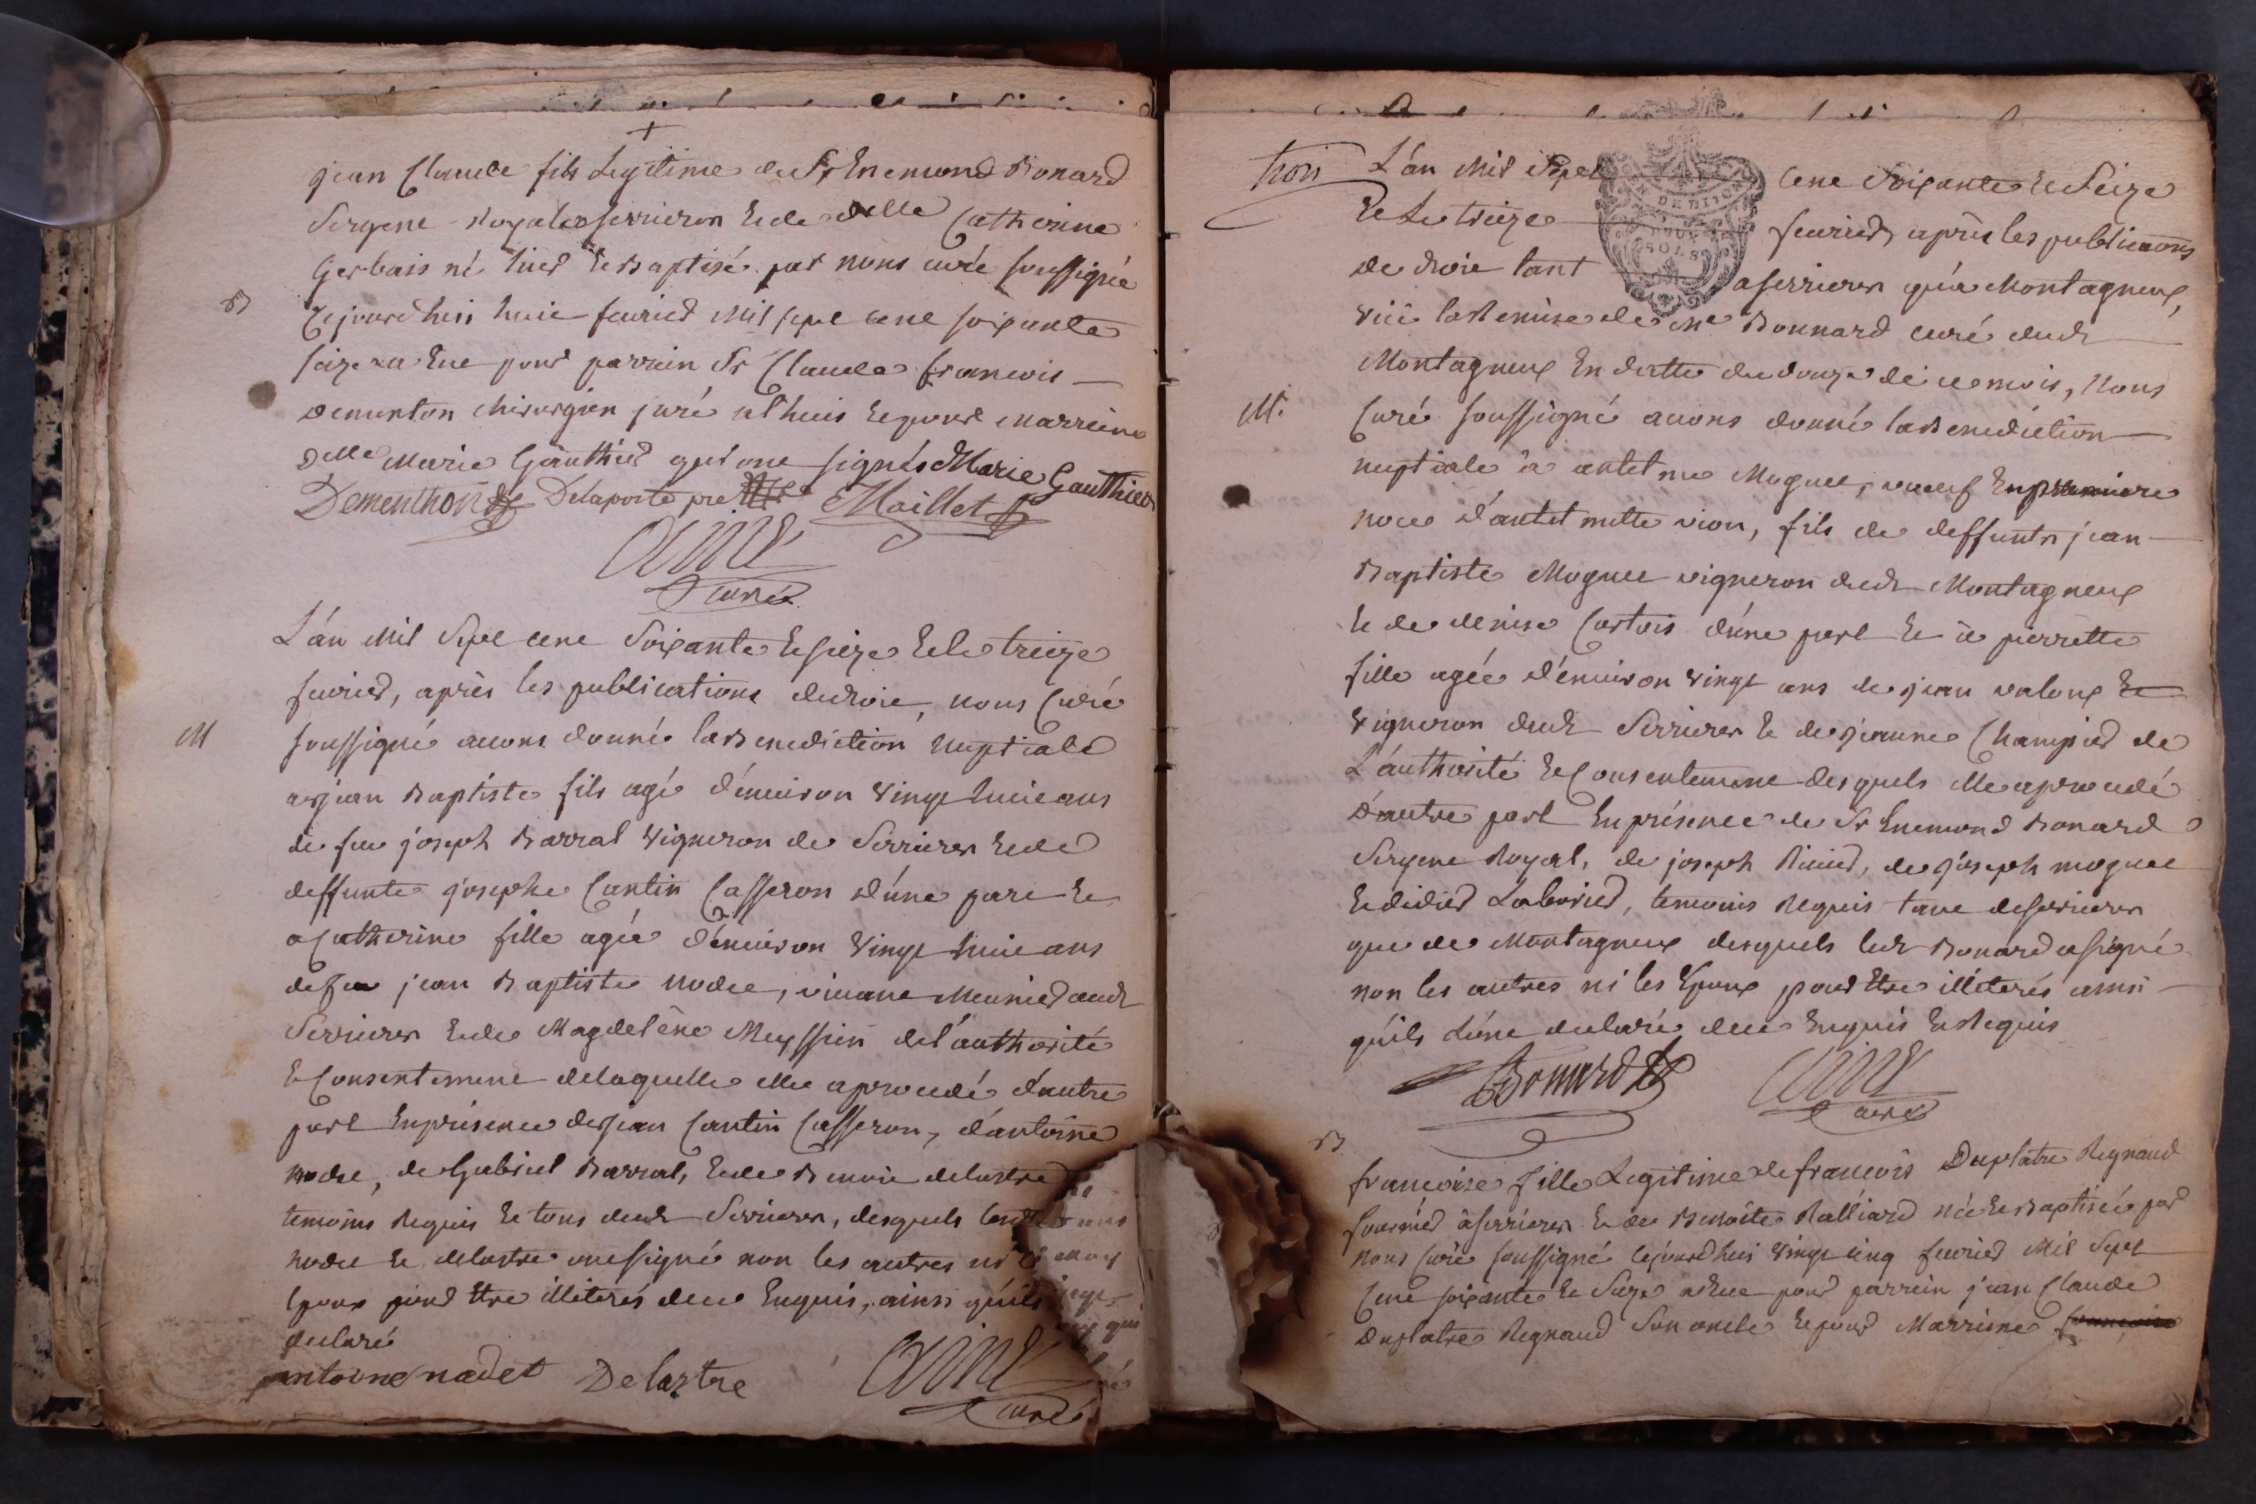 jean Claude fils Legitime du Sr Enemond Bonard
Sergent Royal a serrieres Et de delle Catherine
Gerbais né hier Et Baptisé par nous curé soussigné
B
Cejourdhui huit fevrier mil sept cent soixante
seize a Eue pour parrain Sr Claude francois
dementon chirurgien juré Et pour Marreine
delle Marie Gauthier qui ont signés Marie Gauthier
Dementhon Delaporte pre Maillet
curé
L'an mil sept cent soixante Et seize Et le treize
fevrier, après les publications de droit, nous Curé
M
soussigné avons donné la Benediction nuptiale
a jean Baptiste fils agé d'environ vingt huit ans
de feu joseph Barral vigneron de Serrieres Et de
deffunte josephe Cantin Casseron d'une part Et
a Catherine fille agée d'environ vingt huit ans
de feu jean Baptiste nodet, vivant Meunier aud
Serrieres Et de Magdeléne Meyssin de l'authorité
Et Consentement de laquelle elle a procedé d'autre
part En présence de jean Cantin Casseron, d'antoine
nodet, de Gabriel Barral, Et de Benoit delastre
temoins Requis Et tous dud Serrieres, desquels lesd
nodet Et delastre ont signé non les autres ni
Epoux pour Etre illiterés de ce Enquis, ainsi qu'ils
declaré
antoine nadet Delaztre
curé
trois
L'an Mil Sept Cent Soixante Et Seize
Et Le treize fevrier, après les publications
de droit tant a serrieres qu'a Montagneux,
vüe la Remise de Me Bonnard curé dud
Montagneux En datte du douze de ce mois, Nous
M.
Curé soussigné avons donné la Benediction
nuptiale à antelme Moguet, veuf En premiere
noce d'antelmette vion, fils de deffunts jean
Baptiste Moguet vigneron dud Montagneux
Et de denise Cortois d'une part Et à pierrette
fille agée d'environ vingt ans de jean valoux Et
vigneron dud Serrieres Et de jeanne Champier de
L'authorité Et Consentement desquels elle a procedé
d'autre part En présence de Sr Enemond Bonard
Sergent Royal, de joseph Rivier, de joseph moguet
Et didier Laborier, temoins Requis tant de serrieres
que de Montagneux desquels led Bonard a signé
non les autres ni les Epoux pour Etre illiterés ainsi
qu'ils L'ont declaré de ce Enquis Et Requis
Bonard
curé
B
francoise fille Legitime de francois Duplatre Regnaud
fournier à serrieres Et de Benoîte Ralliard née Et Baptisée par
nous Curé soussigné cejourdhui vingt cinq fevrier Mil Sept
Cent soixante Et Seize a Eue pour parrain jean Claude
Duplatre Regnaud Son oncle Et pour Marreine